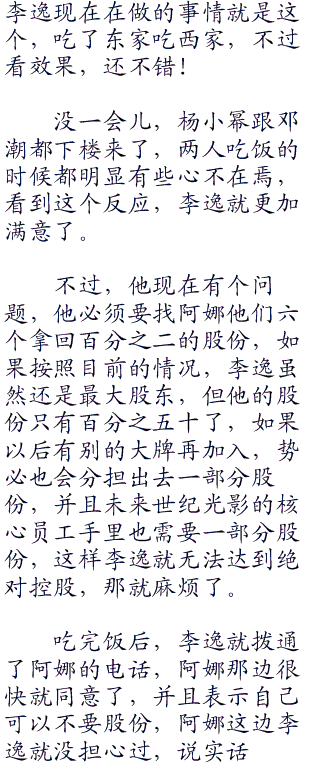 李逸现在在做的事情就是这
个，吃了东家吃西家，不过
看效果，还不错！
没一会儿，杨小幂跟邓
潮都下楼来了，两人吃饭的
时候都明显有些心不在焉，
看到这个反应，李逸就更加
满意了。
不过，他现在有个问
题，他必须要找阿娜他们六
个拿回百分之二的股份，如
果按照目前的情况，李逸虽
然还是最大股东，但他的股
份只有百分之五十了，如果
以后有别的大牌再加入，势
必也会分担出去一部分股
份，并且未来世纪光影的核
心员工手里也需要一部分股
份，这样李逸就无法达到绝
对控股，那就麻烦了。
吃完饭后，李逸就拨通
了阿娜的电话，阿娜那边很
快就同意了，并且表示自己
可以不要股份，阿娜这边李
逸就没担心过，说实话